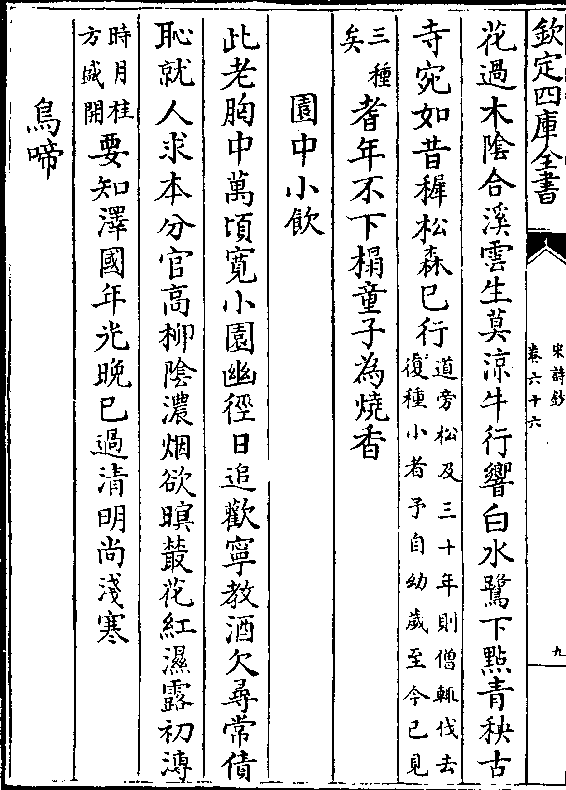 欽定四庫全書
宋詩鈔
卷六十六
九
花過木陰合溪雲生莫涼牛行響白水鷺下㸃青秧古
寺宛如昔穉松森已行道旁松及三十年則僧輒伐去
復種小者予自幼歲至今已見
三種
矣耆年不下榻童子為燒香
園中小飲
此老胸中萬頃寛小園幽徑日追歡寧教酒欠尋常債
恥就人求本分官高栁陰濃烟欲暝叢花紅濕露初漙
時月桂
方盛開要知澤國年光晚已過清明尚淺寒
鳥啼